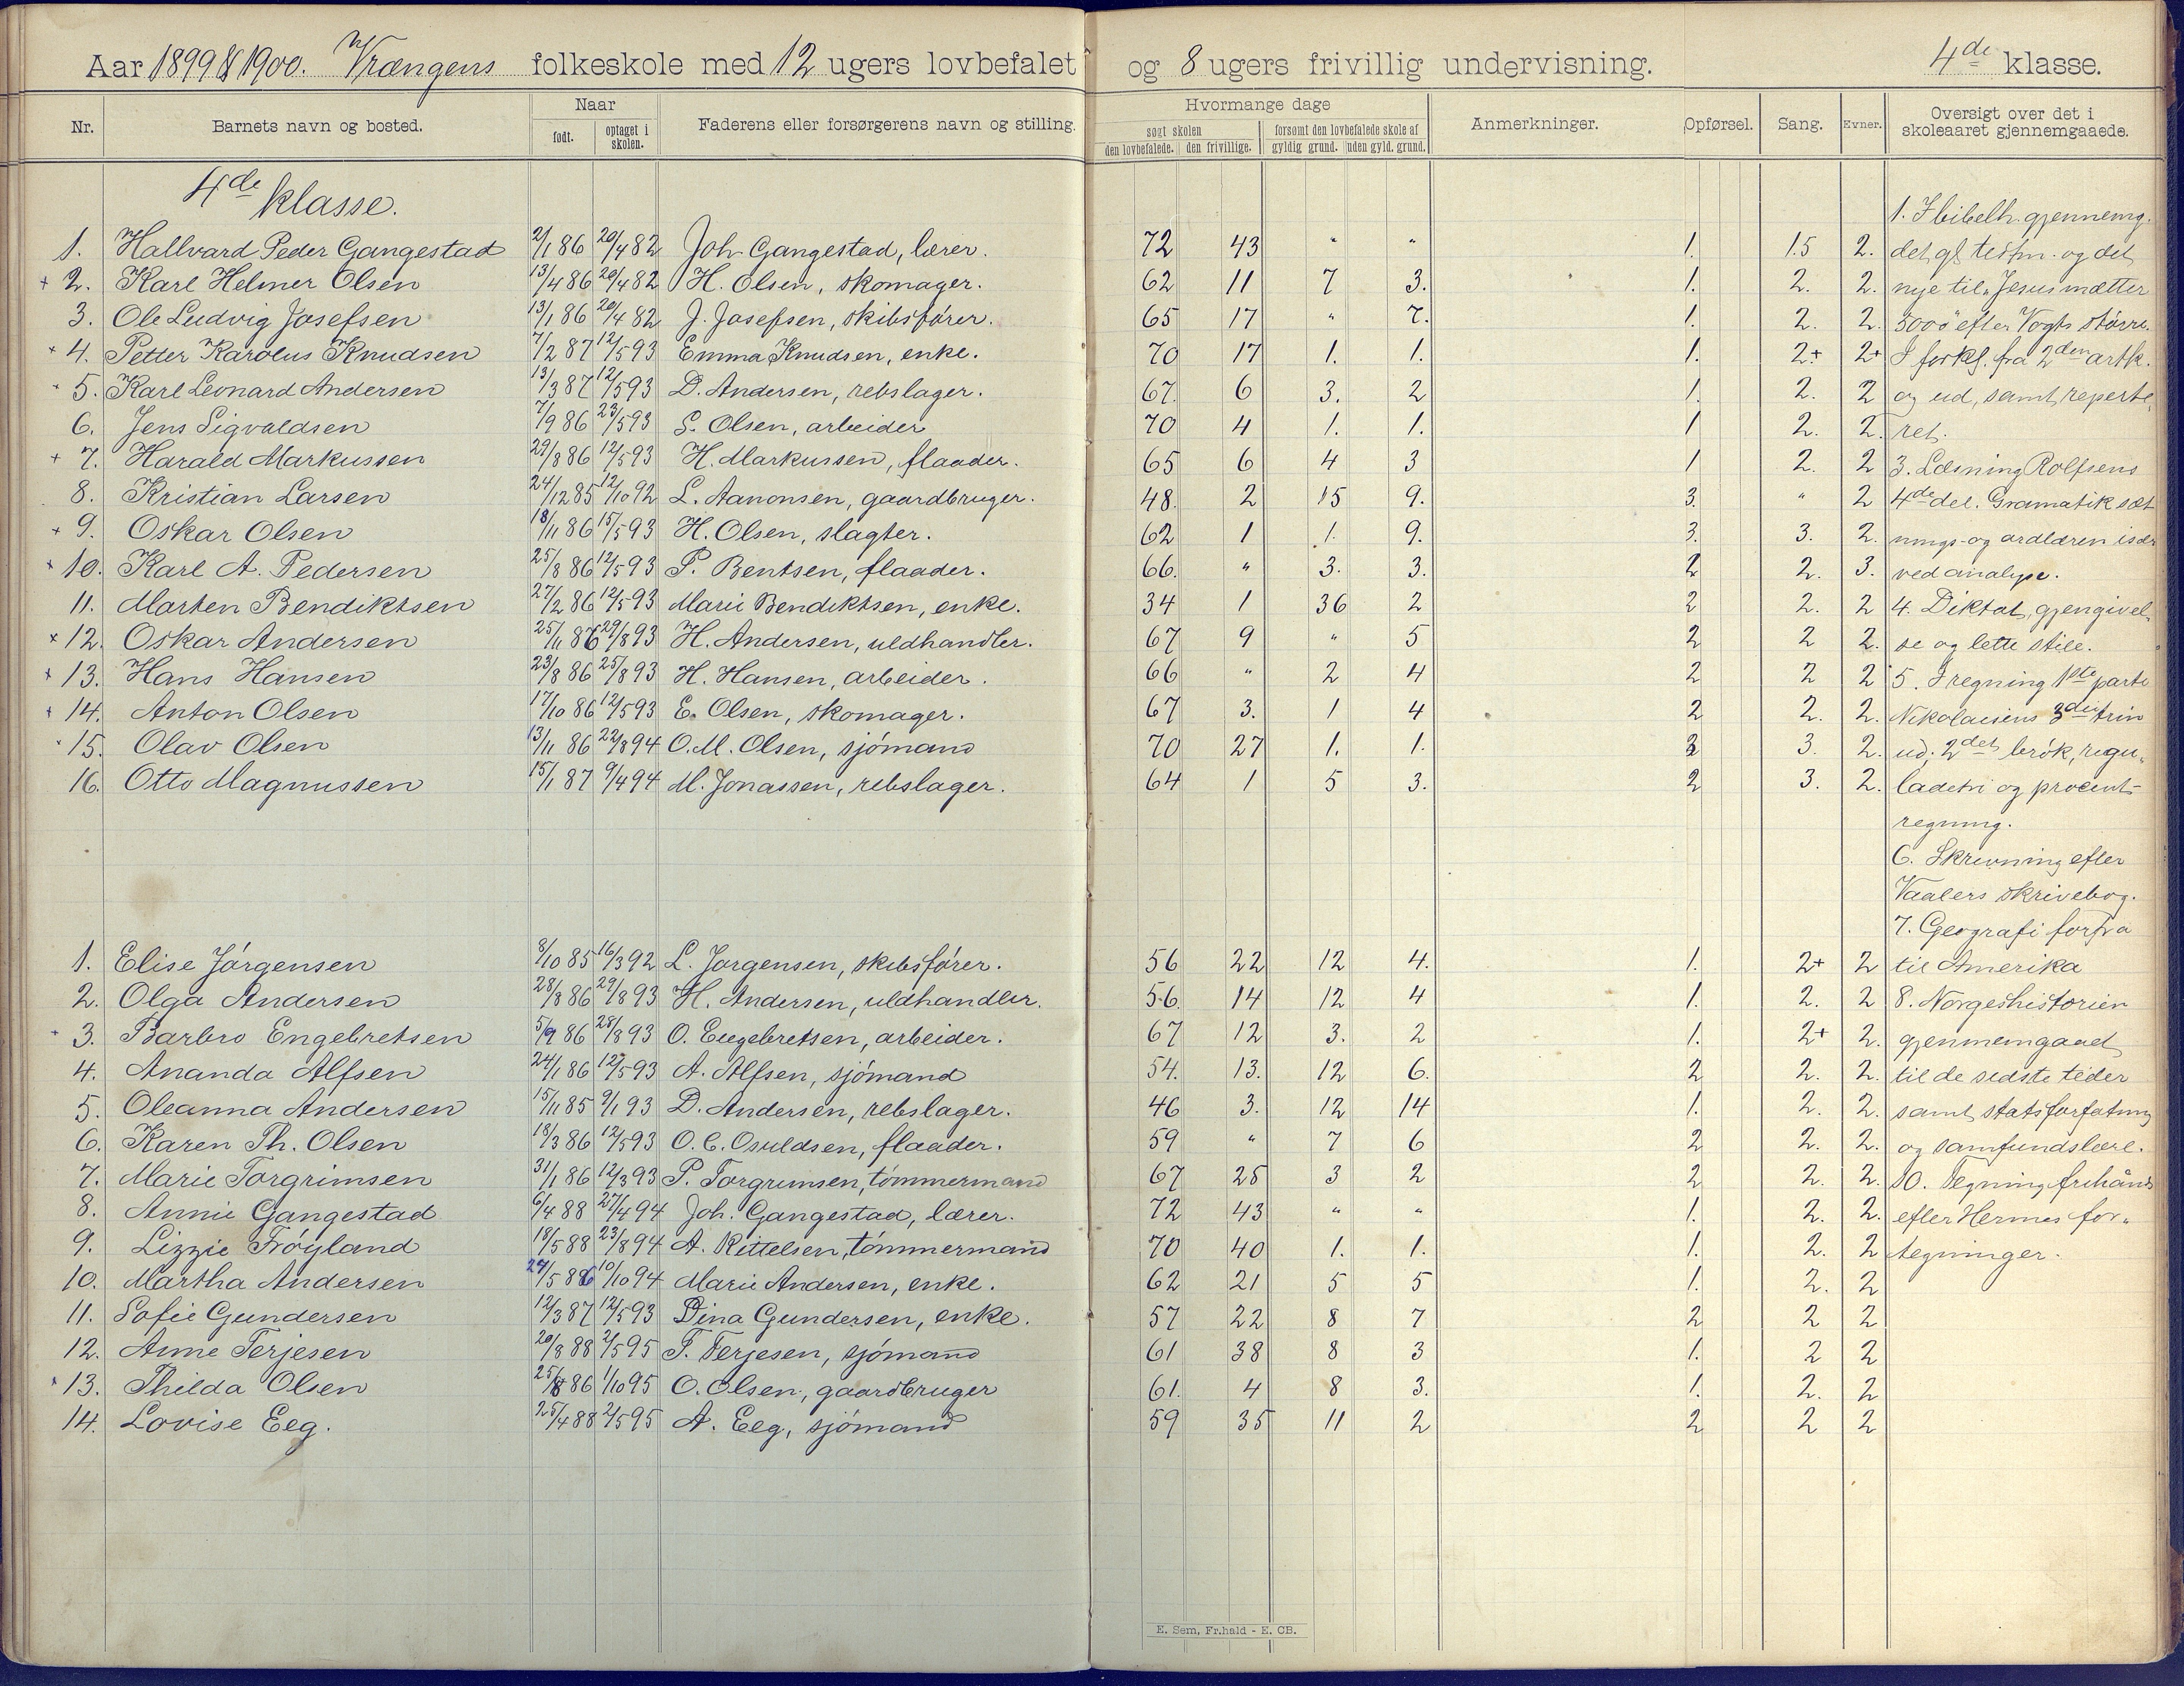 Aar 1899 & 1900. Vrængens folkeskole med 12 ugers lovbefalet og 8 ugers frivillig undervisning. 4de klasse.
Nr. Barnets navn og bosted. Naar født. optaget i skolen. Faderens eller forsørgerens navn og stilling. Hvormange dage søgt skolen den lovbefalede. den frivillige. forsømt den lovbefalede skole af gyldig grund. uden gyld. grund. Anmerkninger. Opførsel. Sang. Evner. Oversigt over det i skoleaaret gjennemgaaede.
4de klasse.
1. I bibelh. gjennemg.
1. Hallvard Peder Gangestad 2/1 86 20/4 82 Joh Gangestad, lærer. 72 43 " " 1. 1.5 2. det gl. testm. og det
+ 2. Karl Helmer Olsen 13/4 86 20/4 82 H. Olsen, skomager. 62 11 7 3. 1. 2. 2. nye til "Jesus mætter
3. Ole Ludvig Josefsen 13/1 86 20/4 82 J. Josefsen, skibsfører. 65 17 " 7. 1. 2. 2. 5000" efter Vogts større.
+ 4. Petter Karolus Knudsen 7/2 87 12/5 93 Emma Knudsen, enke. 70 17 1. 1. 1. 2+ 2+ I forkl. fra 2den artk.
+ 5. Karl Leonard Andersen 13/3 87 12/5 93 D. Andersen, rebslager. 67. 6 3. 2 1. 2. 2 og ud, samt reperte
6. Jens Sigvaldsen 7/9 86 23/5 93 S. Olsen, arbeider 70 4 1. 1. 1 2. 2. ret.
+ 7. Harald Markussen 29/8 86 12/5 93 H. Markussen, flaader. 65 6 4 3 1 2. 2 3. Læsning Rolfsens
8. Kristian Larsen 24/12 85 12/10 92 L. Aanonsen, gaardbruger. 48. 2 15 9. 3. " 2 4de del. Gramatik sæt
+ 9. Oskar Olsen 18/11 86 15/5 93 H. Olsen, slagter. 62 1 1. 9. 3. 3. 2. nings- og ordlæren især
+ 10. Karl A. Pedersen 25/8 86 12/5 93 P. Bentsen, flaader. 66. " 3. 3. 2 2. 3. ved analyse.
11. Marten Bendiktsen 27/2 86 12/5 93 Marie Bendiktsen, enke. 34 1 36 2 2 2. 2 4. Diktat, gjengivel-
+ 12. Oskar Andersen 25/11 86 29/8 93 H. Andersen, uldhandler. 67 9 " 5 2 2 2. se og lette stile.
+ 13. Hans Hansen 23/8 86 25/8 93 H. Hansen, arbeider. 66 " 2 4 2 2 2 5. I regning 1ste parti
+ 14. Anton Olsen 17/10 86 12/5 93 E. Olsen, skomager. 67 3. 1 4 2 2. 2. Nikolaisens 3die trin
+ 15. Olav Olsen 13/11 86 22/8 94 O.M. Olsen, sjømand 70 27 1. 1. 2 3. 2. ud; 2det brøk, regu-
16. Otto Magnussen 15/1 87 9/4 94 M. Jonassen, rebslager. 64 1 5 3. 2 3. 2. ladetri og procent-
regning.
6. Skrivning efter
Vaalers skrivebog.
7. Geografi forfra
1. Elise Jørgensen 8/10 85 16/3 92 L. Jørgensen, skibsfører. 56 22 12 4. 1. 2+ 2 til Amerika
2. Olga Andersen 28/8 86 29/8 93 H. Andersen, uldhandler. 56. 14 12 4 1. 2. 2 8. Norgeshistorien
+ 3. Barbro Engebretsen 5/9 86 28/8 93 O. Engebretsen, arbeider. 67 12 3. 2 1. 2+ 2. gjennemgaaet
4. Ananda Alfsen 24/1 86 12/5 93 A. Alfsen, sjømand 54. 13. 12 6. 2 2. 2. til de sidste tider
5. Oleanna Andersen 15/11 85 9/1 93 D. Andersen, rebslager. 46 3. 12 14 1. 2. 2. samt statsforfatning
6. Karen Th. Olsen 18/3 86 12/5 93 O.C. Osuldsen, flaader. 59 " 7 6 2 2. 2. og samfundslære.
7. Marie Torgrimsen 31/1 86 12/3 93 P. Torgrimsen, tømmermand 67 25 3 2 2 2. 2. 10. Tegning frihånds
8. Annie Gangestad 6/4 88 27/4 94 Joh. Gangestad, lærer. 72 43 " " 1. 2. 2. efter Hermes for-
9. Lizzie Frøyland 18/5 88 23/8 94 A. Kittelsen, tømmermand 70 40 1. 1. 1. 2. 2 tegninger.
10. Martha Andersen 24/5 86 10/10 94 Marie Andersen, enke. 62 21 5 5 1. 2. 2
11. Sofie Gundersen 12/3 87 12/5 93 Dina Gundersen, enke. 57 22 8 7 2 2 2
12. Anne Terjesen 20/8 88 2/5 95 T. Terjesen, sjømand 61 38 8 3 1. 2 2
+ 13. Thilda Olsen 25/8 86 1/10 95 O. Olsen, gaardbruger 61. 4 8 3. 1. 2. 2
14. Lovise Eeg. 25/4 88 2/5 95 A. Eeg, sjømand 59 35 11 2 2 2 2
E. Sem, Fr.hald - E. CB.